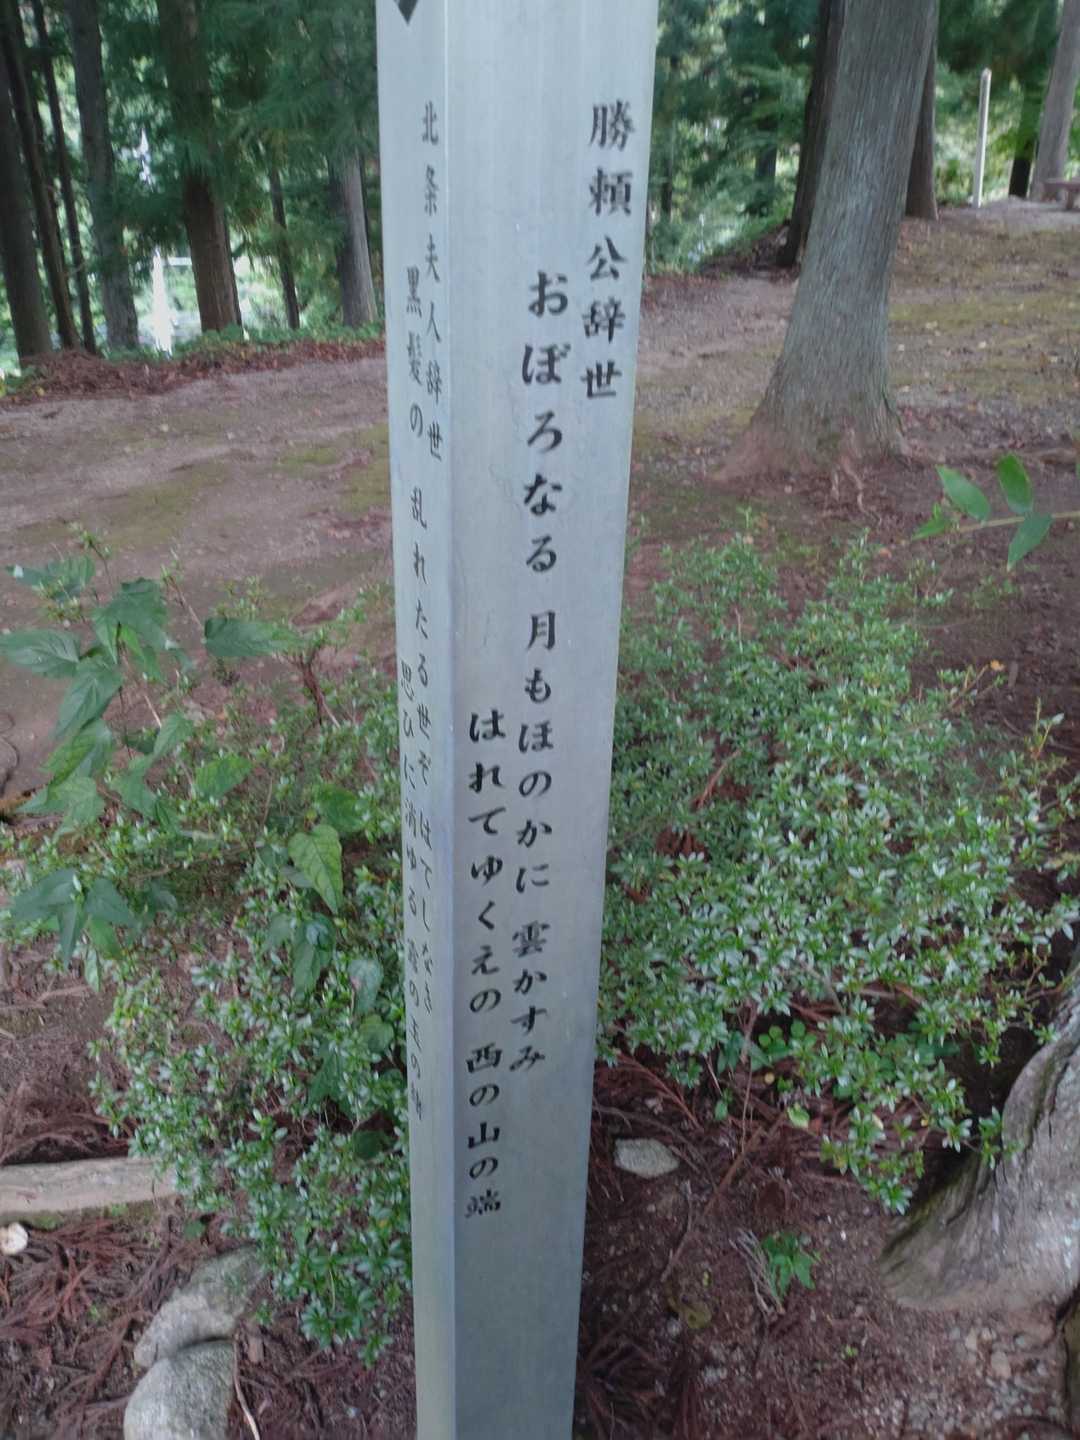 勝頼公辞世
おぼろなる 月もほのかに 雲かすみ
はれてゆくえの 西の山の端
北条夫人辞世
黒髪の 乱れたる世ぞ はてしなき
思ひに消ゆる 露の玉の緒